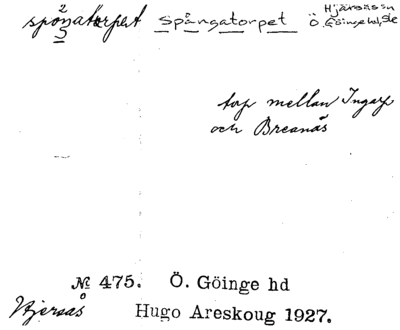 spånatorpet Spångatorpet Hjärsås sn
Ö. Göinge hd, Sk
torp mellan Ingarp
och Breanäs
№ 475. Ö. Göinge hd
Hjersås Hugo Areskoug 1927.